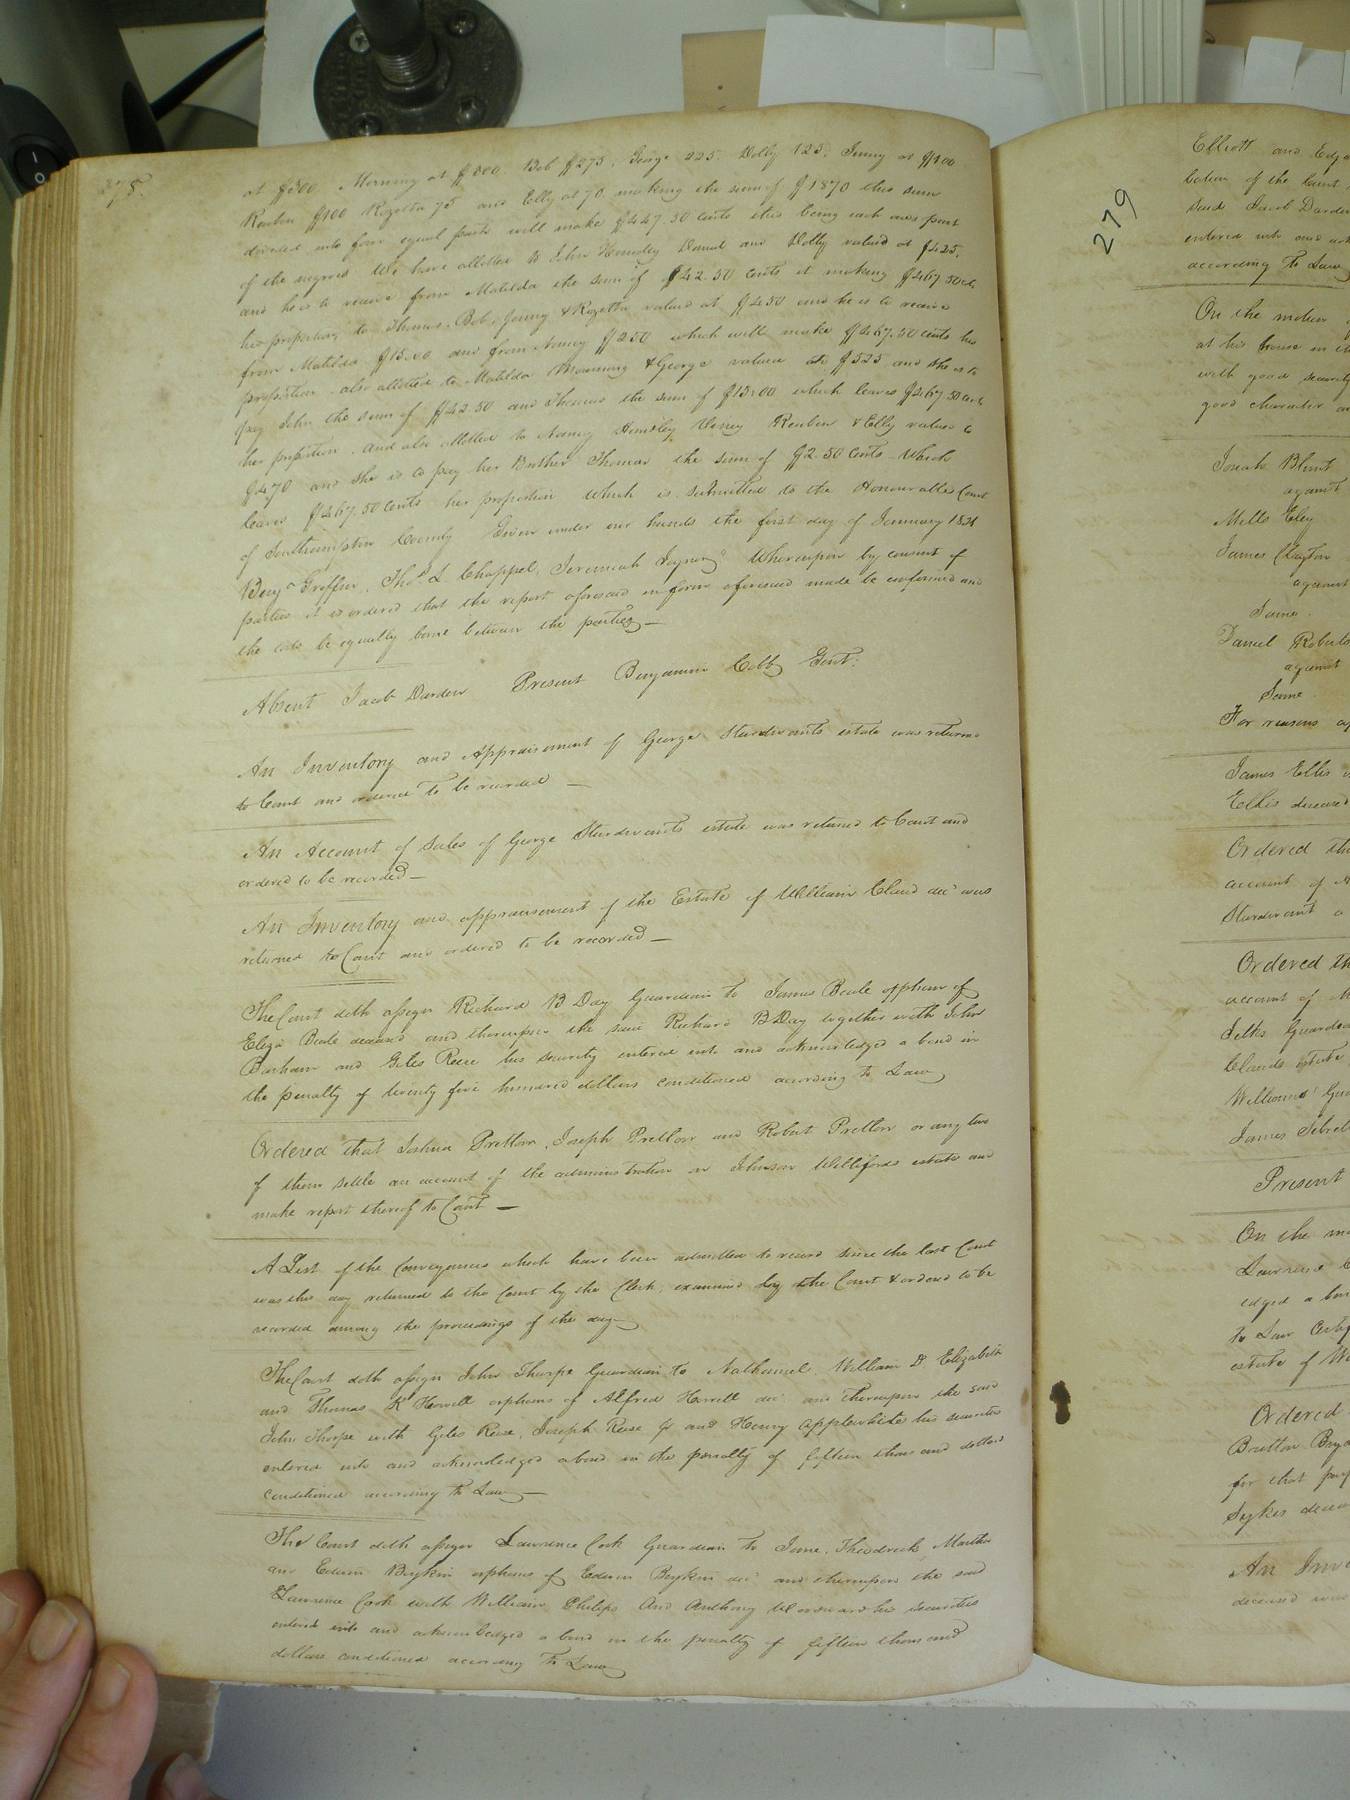 278
at $300. Morning at $300. Bob $275. George 225. Dolly 125. Jinny at $100
Reuben $100 Rozetta 75 and Elly at 70. making the sum of $1870 this sum
divided into four equal parts will make $467.50 cents this being each ones part
of the negroes We have allotted to John Daniel and Dolly valued at $425.
and he is to receive from Matilda the sum of $42.50 cents it making $467.50 cts
his proportion to Thomas. Bob, Jenny & Rozetta valued at $450 and he is to receive
from Matilda $15.00 and from Nancy $2.50 which will make $467.50 cents his
proportion. also allotted to Matilda Morning & George valued at $525 and she is to
pay John the sum of $42.50 and Thomas the sum of $15.00 which leaves $467.50 cents
her proportion. and also allotted to Nancy Reuben & Elly valued to
$470 and she is to pay her Brother Thomas the sum of $2.50 Cents Which
leaves $467.50 Cents her proportion Which is submitted to the Honourable Court
of Southampton County Given under our hands the first day of January 1821
Benja Griffin, Thos L Chappel, Jeremiah Whereupon by consent of
parties it is ordered that the report aforesaid in form aforesaid made be confirmed and
the costs be equally borne between the parties—
Absent Jacob Darden Present Benjamin Cobb Gent:
An Inventory and Appraisement of George Sturdivants estate was returned
to Court and ordered To be recorded —
An Account of Sales of George Sturdivants estate was returned to Court and
ordered to be recorded—
An Inventory and appraisement of the Estate of William Claud decd was
returned to Court and ordered to be recorded—
The Court doth assign Richard B Day Guardian to James Beale orphan of
Eliza Beale deceased and thereupon the said Richard B Day together with John
Barham and Giles Reese his security entered into and acknowledged a bond in
the penalty of twenty five hundred dollars conditioned according to Law
Ordered that Joshua Pretlow, Joseph Pretlow and Robert Pretlow or any two
of them settle an account of the administration on Johnson Willifords estate and
make report thereof to Court —
A List of the Conveyances which have been admitted to record since the last Court
was this day returned to the Court by the Clerk, examined by the Court & ordered to be
recorded among the proceedings of the day
The Court doth assign John Thorpe Guardian to Nathaniel, William D. Elizabeth
and Thomas K Harrell orphans of Alfred Harrell decd and thereupon the said
John Thorpe with Giles Reese, Joseph Reese Jr and Henry Applewhite his securities
entered into and acknowledged a bond in the penalty of fifteen thousand dollars
conditioned according to Law—
The Court doth assign Lawrence Cook Guardian to Jane, Theodrick, Martha
and Edwin Boykin orphans of Edwin Boykin decd and thereupon the said
Lawrence Cook with William Philips And Anthony Woodward his securities
entered into and acknowledged a bond in the penalty of fifteen thousand
dollars conditioned according To Law
279
Elliott and
of the Court
said Jacob Darden
entered into and
according To Law
On the motion
at his house in
with good security
good character
Josiah Blunt
against
Mills Eley
James Clayton
against
Same.
Daniel Roberts
against
Same
For reasons
James Ellis
Ellis deceased
Ordered
account of
Sturdivant
Ordered
account of
Silks Guardian
Clauds estate
Williams'
James
Present
On the
Lawrence
edged a
to Law
estate of
Ordered
Britton
for that
Sykes
An
deceased was